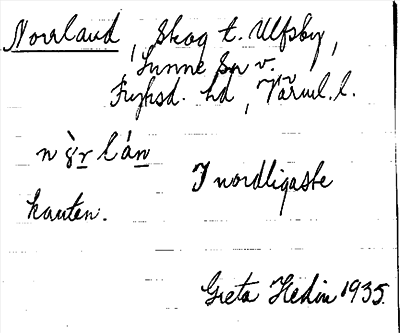 Norrland, Skog t. Ulfsby,
Sunne Sn v.
Fryksd. hd, Värml. l.
I nordligaste
kanten.
Greta Hedin 1935.